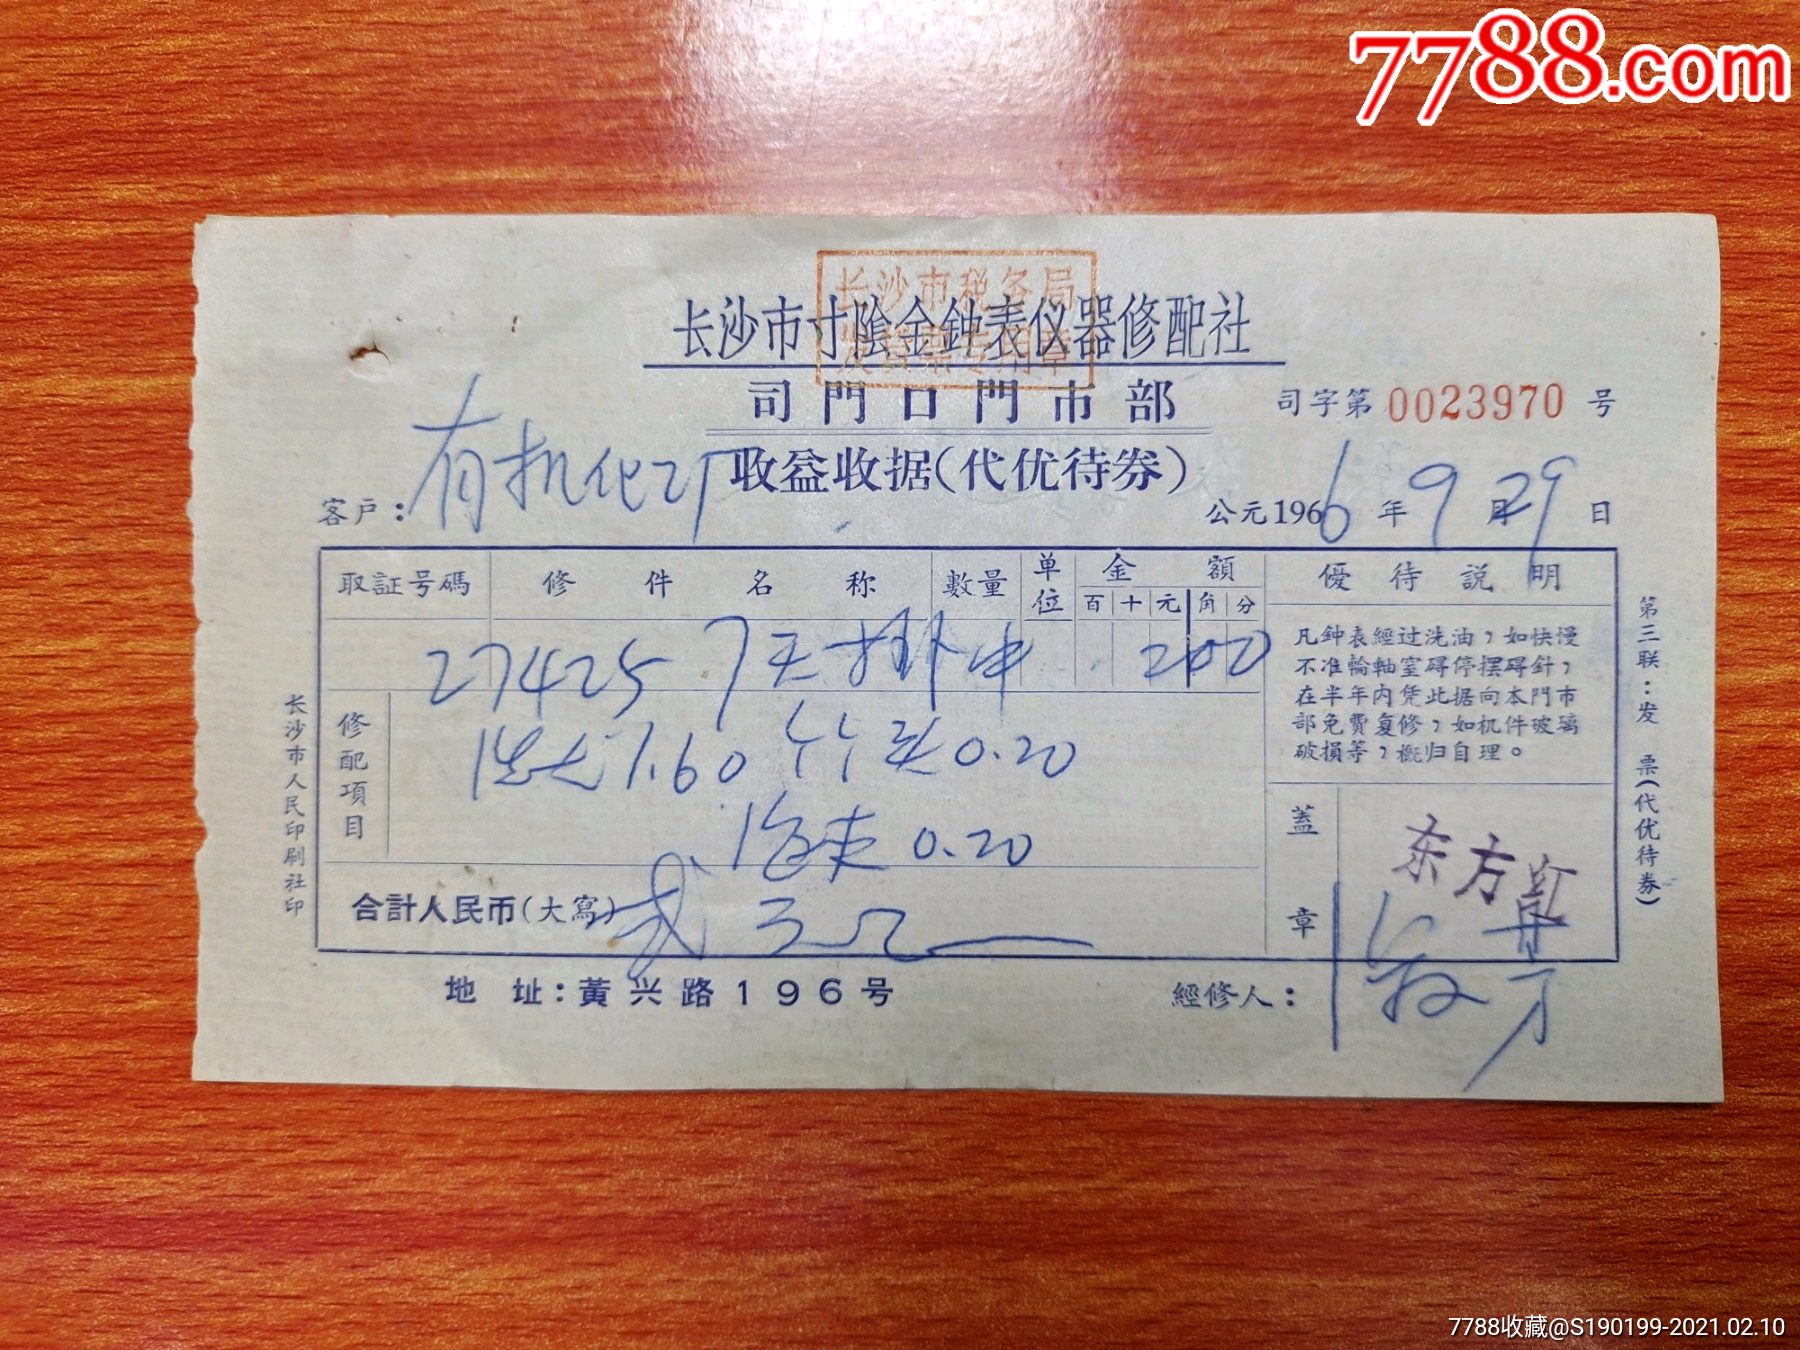 7788.com
长沙市税务局
长沙市寸陰金鈡表仪器修配社
司門口門市部
司字第0023970号
收益收据(代优待券)
客户：有机化工厂
公元1966年9月29日
取証号碼 修件名称 數量 单位 金額 優待説明
百 十 元 角 分
27425 7天掛中 200
凡鈡表經过洗油，如快慢
不准輪軸室碍停摆碍針，
在半年内凭此据向本門市
部免費复修，如机件玻璃
破損等，概归自理。
修配項目
1.60 0.20
0.20
合計人民币(大寫) 弍元
蓋章
东方红
地址：黃兴路196号
經修人：
长沙市人民印刷社印
第三联：发票(代优待券)
7788收藏@S190199-2021.02.10